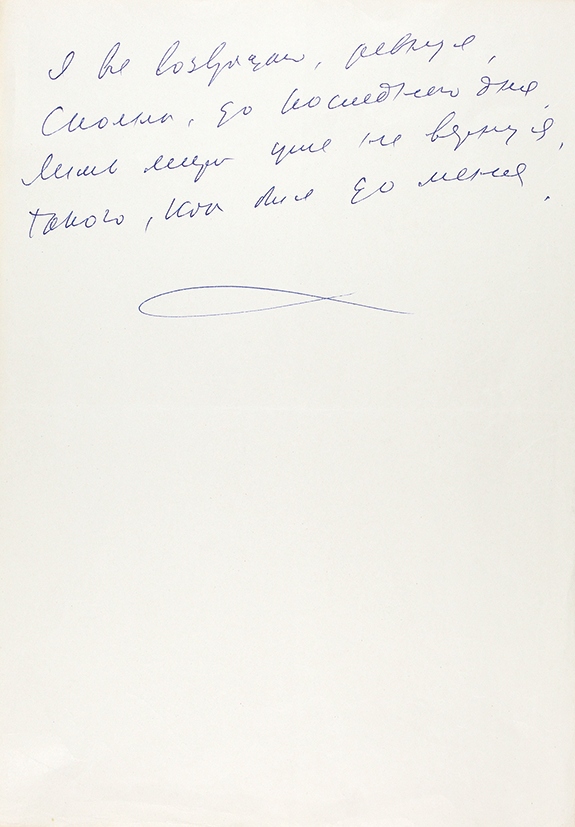 Я все возвращаю, ревнуя,
Сполна, до последнего дня,
Лишь мира уже не верну я,
Такого, как был до меня.